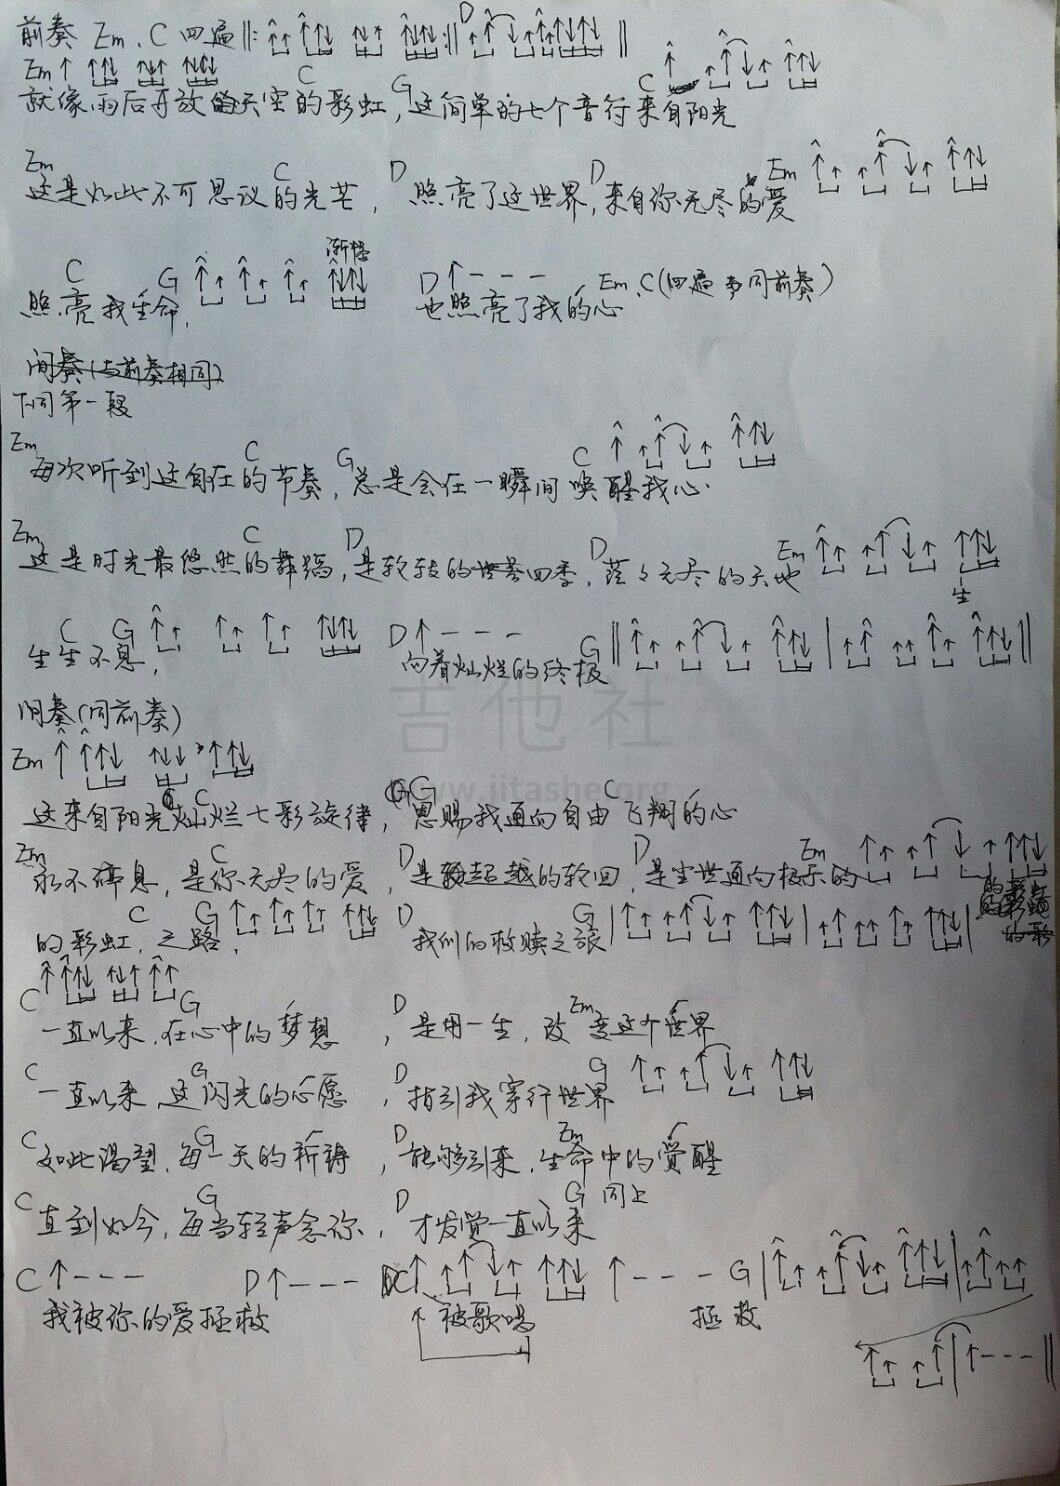 前奏 Em、C 四遍 D
Em C C
就像雨后开放的天空的彩虹，G这简单的七个音符来自阳光
Em C D D Em
这是如此不可思议的光芒，照亮了这世界，来自你无尽的爱
C G 渐慢 D Em、C(四遍 同前奏)
照亮我生命，也照亮了我的心
间奏(与前奏相同)
下同第一段
Em C G C
每次听到这自在的节奏，总是会在一瞬间唤醒我心
Em C D D Em
这是时光最悠然的舞蹈，是软软的世界四季，荡々无尽的天地
生
C G D G
生生不息，向着灿烂的终极
吉他社
www.jitashe.org
间奏(同前奏)
Em
C G C
这来自阳光灿烂七彩旋律，恩赐我通向自由飞翔的心
Em C D D Em
永不停息，是你无尽的爱，是超越的轮回，是尘世通向极乐的
C G D G
的彩虹，之路，我们的救赎之旅
C G D Em
一直以来，在心中的梦想，是用一生，改变这个世界
C G D G
一直以来，这闪光的心愿，指引我穿行世界
C G D Em
如此渴望，每一天的祈祷，能够引来，生命中的觉醒
C G D G 同上
直到如今，每当轻声念你，才发觉一直以来
C D DC G
我被你的爱拯救 被歌唱 拯救